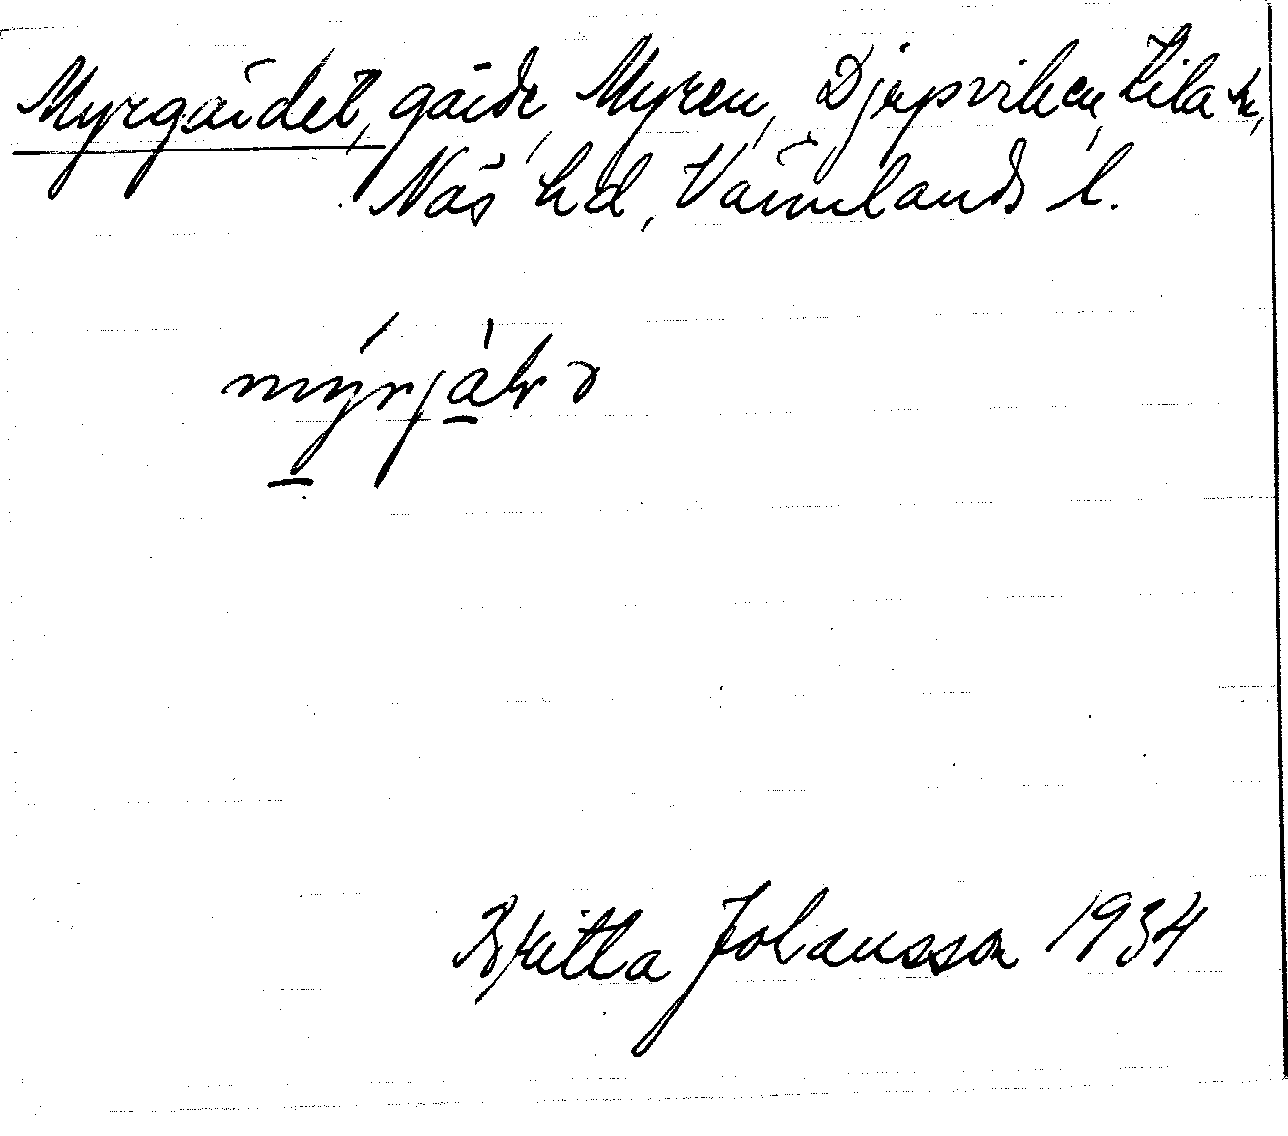 Myrgärdet, gärde, Myren, Djupviken, Kila sn,
Näs hd, Värmlands l.
Britta Johansson 1934